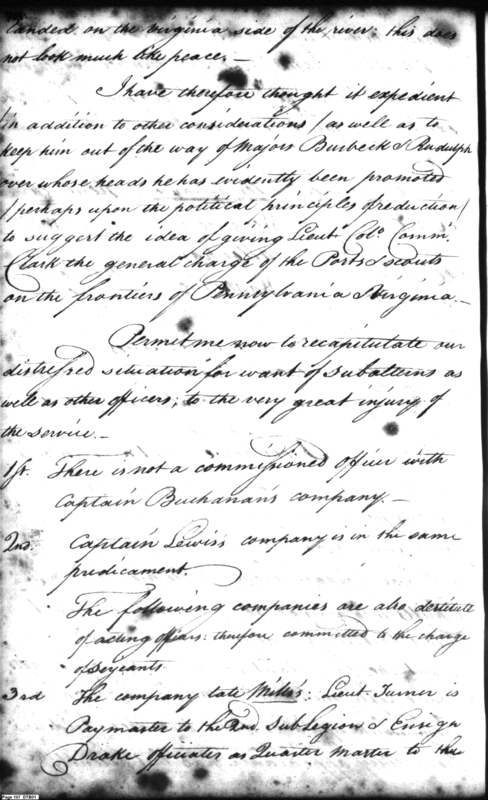 landed on the Virginia side of the river: this does
not look much like peace. —
I have therefore thought it expedient
in addition to other considerations / as well as to
keep him out of the way of Majors Burbeck & Rudulph
over whose heads he has evidently been promoted
/ perhaps upon the political principles of reduction /
to suggest the idea of giving Lieut Colo. Comm.
Clark the general charge of the Posts & scouts
on the frontiers of Pennsylvania & Virginia. —
Permit me now to recapitutate our
distressed situation for want of subalterns as
well as other officers; to the very great injury of
the service. —
1st. There is not a commissioned officer with
Captain Buchanan's company. —
2nd. Captain Lewis's company is in the same
predicament.
The following companies are also destitute
of acting officers: therefore committed to the charge
of Sergeants
3rd The company late Mills's: Lieut Turner is
Paymaster to the 2nd. Sub Legion & Ensign
Drake officiates as Quarter Master to the
Page 197 07/001